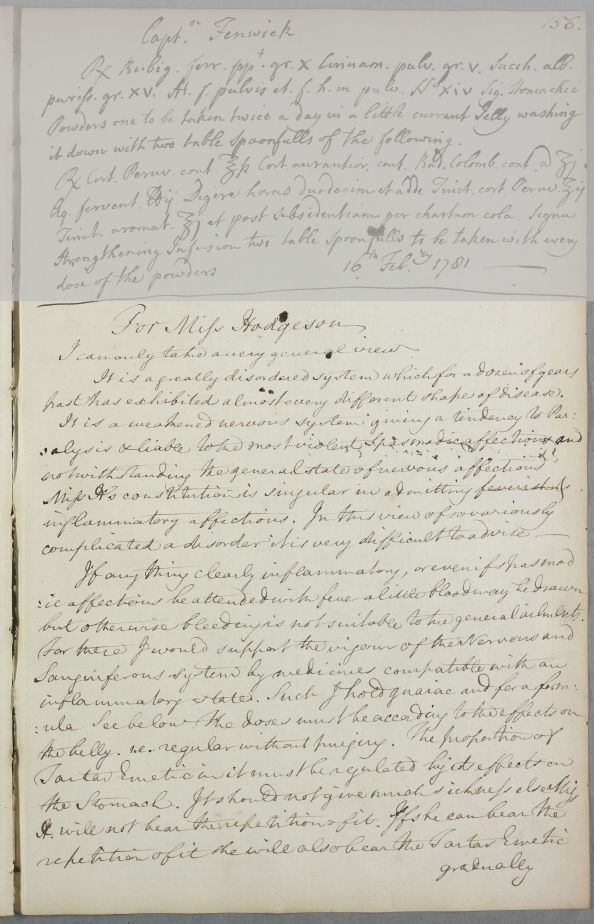 156.
Capt.n Fenwick
Rx Rubig. ferr. ppt. gr. X Cinnam. pulv. gr. v. Sacch. alb.
puriss. gr. XV. M. f. pulvis et. f. h. m pulv. No xiv Sig. Stomachic
Powders one to be taken twice a day in a little currant Jelly washing
it down with two table spoonfulls of the following.
Rx Cort. Peruv. cont. ℥ß Cort aurantior. cont. Rad. Colomb. cont. a ʒj
Aq. fervent. ℔ij Digere horas duodecim et adde Tinct. cort. Peruv. ℥ij
Tinct. aromat. ℥j et post subsidentiam per chartam cola. Signa
Strengthening Infusion two table spoonfulls to be taken with every
dose of the powders
16th Feb.ry 1781
For Miss Hodgeson
I can only take a very general view
It is a greatly disordered system which for a dozen of years
past has exhibited almost every different shape of disease.
It is a weakened nervous system giving a tendency to Par:
:alysis & liable to the most violent spasmodic affections and
notwithstanding the general state of nervous affections
Miss H's constitution is singular in admitting feverish
inflammatory affections. In this view of so variously
complicated a disorder it is very difficult to advise
If any thing clearly inflammatory, or even if spasmod
:ic affections be attended with fever a little blood may be drawn
but otherwise bleeding is not suitable to the general ailments.
For these I would support the vigour of the Nervous and
Sanguiferous system by medicines compatible with an
inflammatory state. Such I hold guaiac and for a form:
:ula See below the doses must be according to the effects on
the belly. i.e. regular without purging. The proportion of
Tartar Emetic in it must be regulated by its effects on
the Stomach. It should not give much sickness else Miss
H. will not bear the repetition of it. If she can bear the
repetition of it she will also bear the Tartar Emetic
gradually